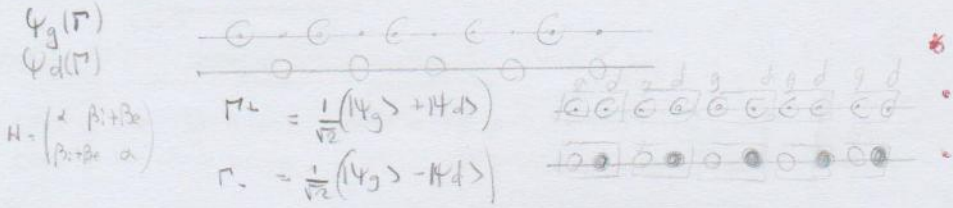 Ψg(Γ)
Ψd(Γ)
H = (α βi+βe
βi+βe α)
Γ+ = 1/√2 (|Ψg> + |Ψd>)
Γ- = 1/√2 (|Ψg> - |Ψd>)
g d g d g d g d g d